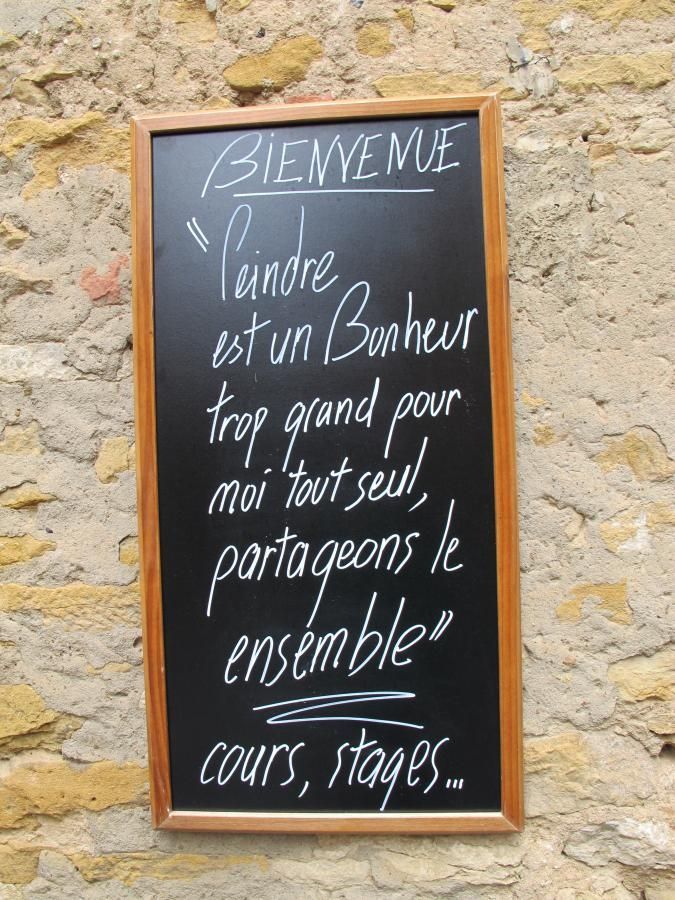 BIENVENUE
"Peindre
est un Bonheur
trop grand pour
moi tout seul,
partageons le
ensemble"
cours, stages...